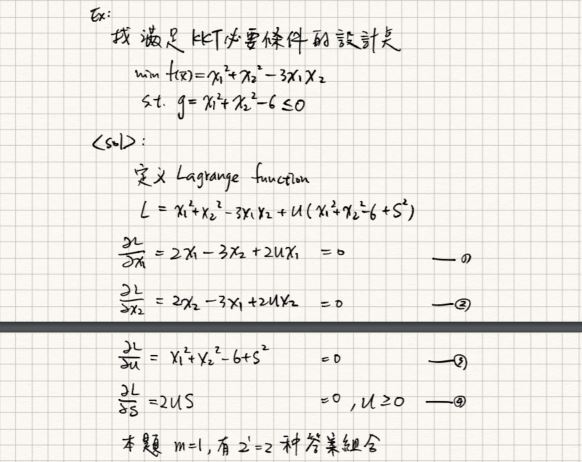 Ex:
找滿足KKT必要條件的設計點
min f(x)=x₁²+x₂²-3x₁x₂
s.t. g=x₁²+x₂²-6≤0
<sol>:
定义Lagrange function
L=x₁²+x₂²-3x₁x₂+u(x₁²+x₂²-6+s²)
∂L/∂x₁=2x₁-3x₂+2ux₁ =0 —①
∂L/∂x₂=2x₂-3x₁+2ux₂ =0 —②
∂L/∂u=x₁²+x₂²-6+s² =0 —③
∂L/∂s=2us =0, u≥0 —④
本題 m=1,有2¹=2種答案組合